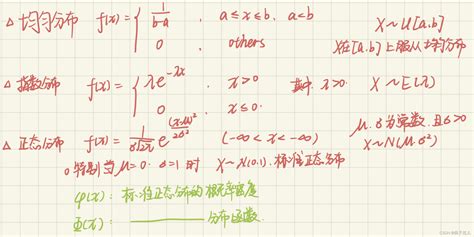 △ 均匀分布 f(x) = { 1/(b-a) , a ≤ x ≤ b, a<b X ~ U[a.b]
0 , others X在[a.b]上服从均匀分布
△ 指数分布 f(x) = { λe^{-λx} x>0 其中 λ>0. X ~ E(λ)
0 , x≤0.
△ 正态分布 f(x) = 1/(σ√2π) e^{(x-μ)²/2σ²} (-∞ < x < -∞) μ.σ为常数,且σ>0
X~N(μ.σ²)
特别当 μ=0. σ=1 时 X ~ N(0.1). 标准正态分布
φ(x): 标准正态分布的概率密度
Φ(x): ———— 分布函数.